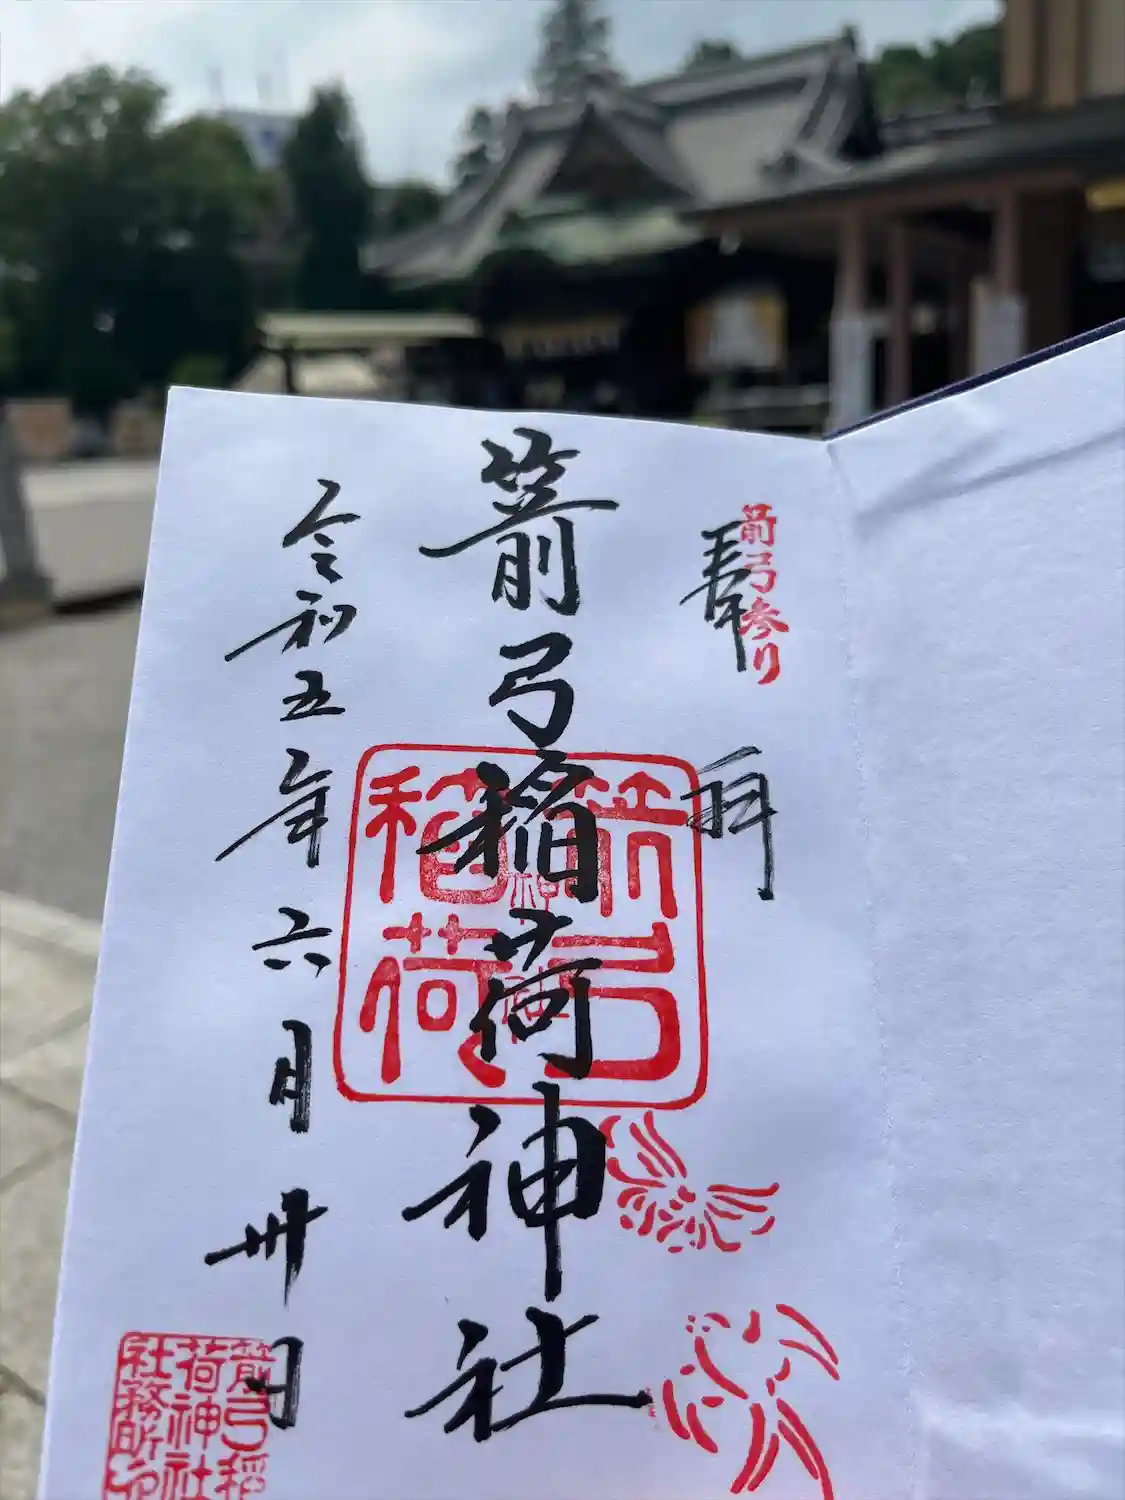 奉拝
箭弓参り
箭弓稲荷神社
箭弓稲荷神社
令和五年六月卅日
箭弓稲荷神社社務所印